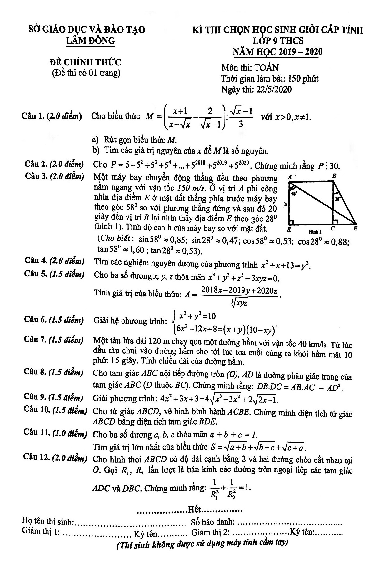 SỞ GIÁO DỤC VÀ ĐÀO TẠO
LÂM ĐỒNG
ĐỀ CHÍNH THỨC
(Đề thi có 01 trang)
KÌ THI CHỌN HỌC SINH GIỎI CẤP TỈNH
LỚP 9 THCS
NĂM HỌC 2019 – 2020
Môn thi: TOÁN
Thời gian làm bài: 150 phút
Ngày thi: 22/5/2020
Câu 1. (2.0 điểm) Cho biểu thức M = ((x+1)/(x-√x) - 2/(√x-1)) : (√x-1)/3 với x>0, x≠1.
a) Rút gọn biểu thức M.
b) Tìm các giá trị nguyên của x để M là số nguyên.
Câu 2. (2.0 điểm) Cho P = 5+5²+5³+5⁴+...+5²⁰¹⁹+5²⁰²⁰. Chứng minh rằng P⋮30.
Câu 3. (2.0 điểm) Một máy bay chuyển động thẳng đều theo phương
nằm ngang với vận tốc 150 m/s. Ở vị trí A phi công
nhìn địa điểm K ở mặt đất thẳng phía trước máy bay
theo góc 58° so với phương thẳng đứng và sau đó 20
giây đến vị trí B lại nhìn thấy địa điểm K theo góc 28°
(hình 1). Tính độ cao h của máy bay so với mặt đất.
(Cho biết: sin58° ≈ 0,85; sin28° ≈ 0,47; cos58° ≈ 0,53; cos28° ≈ 0,88;
tan58° ≈ 1,60; tan28° ≈ 0,53).
A
B
h
K
Hình 1
Câu 4. (2.0 điểm) Tìm các nghiệm nguyên dương của phương trình x²+x+13=y².
Câu 5. (1.5 điểm) Cho ba số dương x, y, z thỏa mãn x³+y³+z³−3xyz=0.
Tính giá trị của biểu thức: A = (2018x−2019y+2020z)/∛xyz.
Câu 6. (1.5 điểm) Giải hệ phương trình: { x²+y²=10
6x²−12x+8=(x+y)(10−xy)
Câu 7. (1.5 điểm) Một tàu lửa dài 120 m chạy qua một đường hầm với vận tốc 40 km/h. Từ lúc
đầu tàu chui vào đường hầm cho tới lúc toa cuối cùng ra khỏi hầm mất 10
phút 15 giây. Tính chiều dài của đường hầm.
Câu 8. (1.5 điểm) Cho tam giác ABC nội tiếp đường tròn (O), AD là đường phân giác trong của
tam giác ABC (D thuộc BC). Chứng minh rằng: DB.DC = AB.AC − AD².
Câu 9. (1.5 điểm) Giải phương trình: 4x²+3x+3=4√(x³+3x²)+2√(2x−1).
Câu 10. (1.5 điểm) Cho tứ giác ABCD, vẽ hình bình hành ACBE. Chứng minh diện tích tứ giác
ABCD bằng diện tích tam giác BDE.
Câu 11. (1.0 điểm) Cho ba số dương a, b, c thỏa mãn a + b + c = 1.
Tìm giá trị lớn nhất của biểu thức S = √(a+b)+√(b+c)+√(c+a).
Câu 12. (2.0 điểm) Cho hình thoi ABCD có độ dài cạnh bằng 2 và hai đường chéo cắt nhau tại
O. Gọi R₁, R₂ lần lượt là bán kính các đường tròn ngoại tiếp các tam giác
ADC và DBC. Chứng minh rằng: 1/R₁²+1/R₂²=1.
....................Hết....................
Họ tên thí sinh:.................... Số báo danh: ....................
Giám thị 1: .................... Ký tên.......... Giám thị 2: ....................Ký tên:..........
(Thí sinh không được sử dụng máy tính cầm tay)